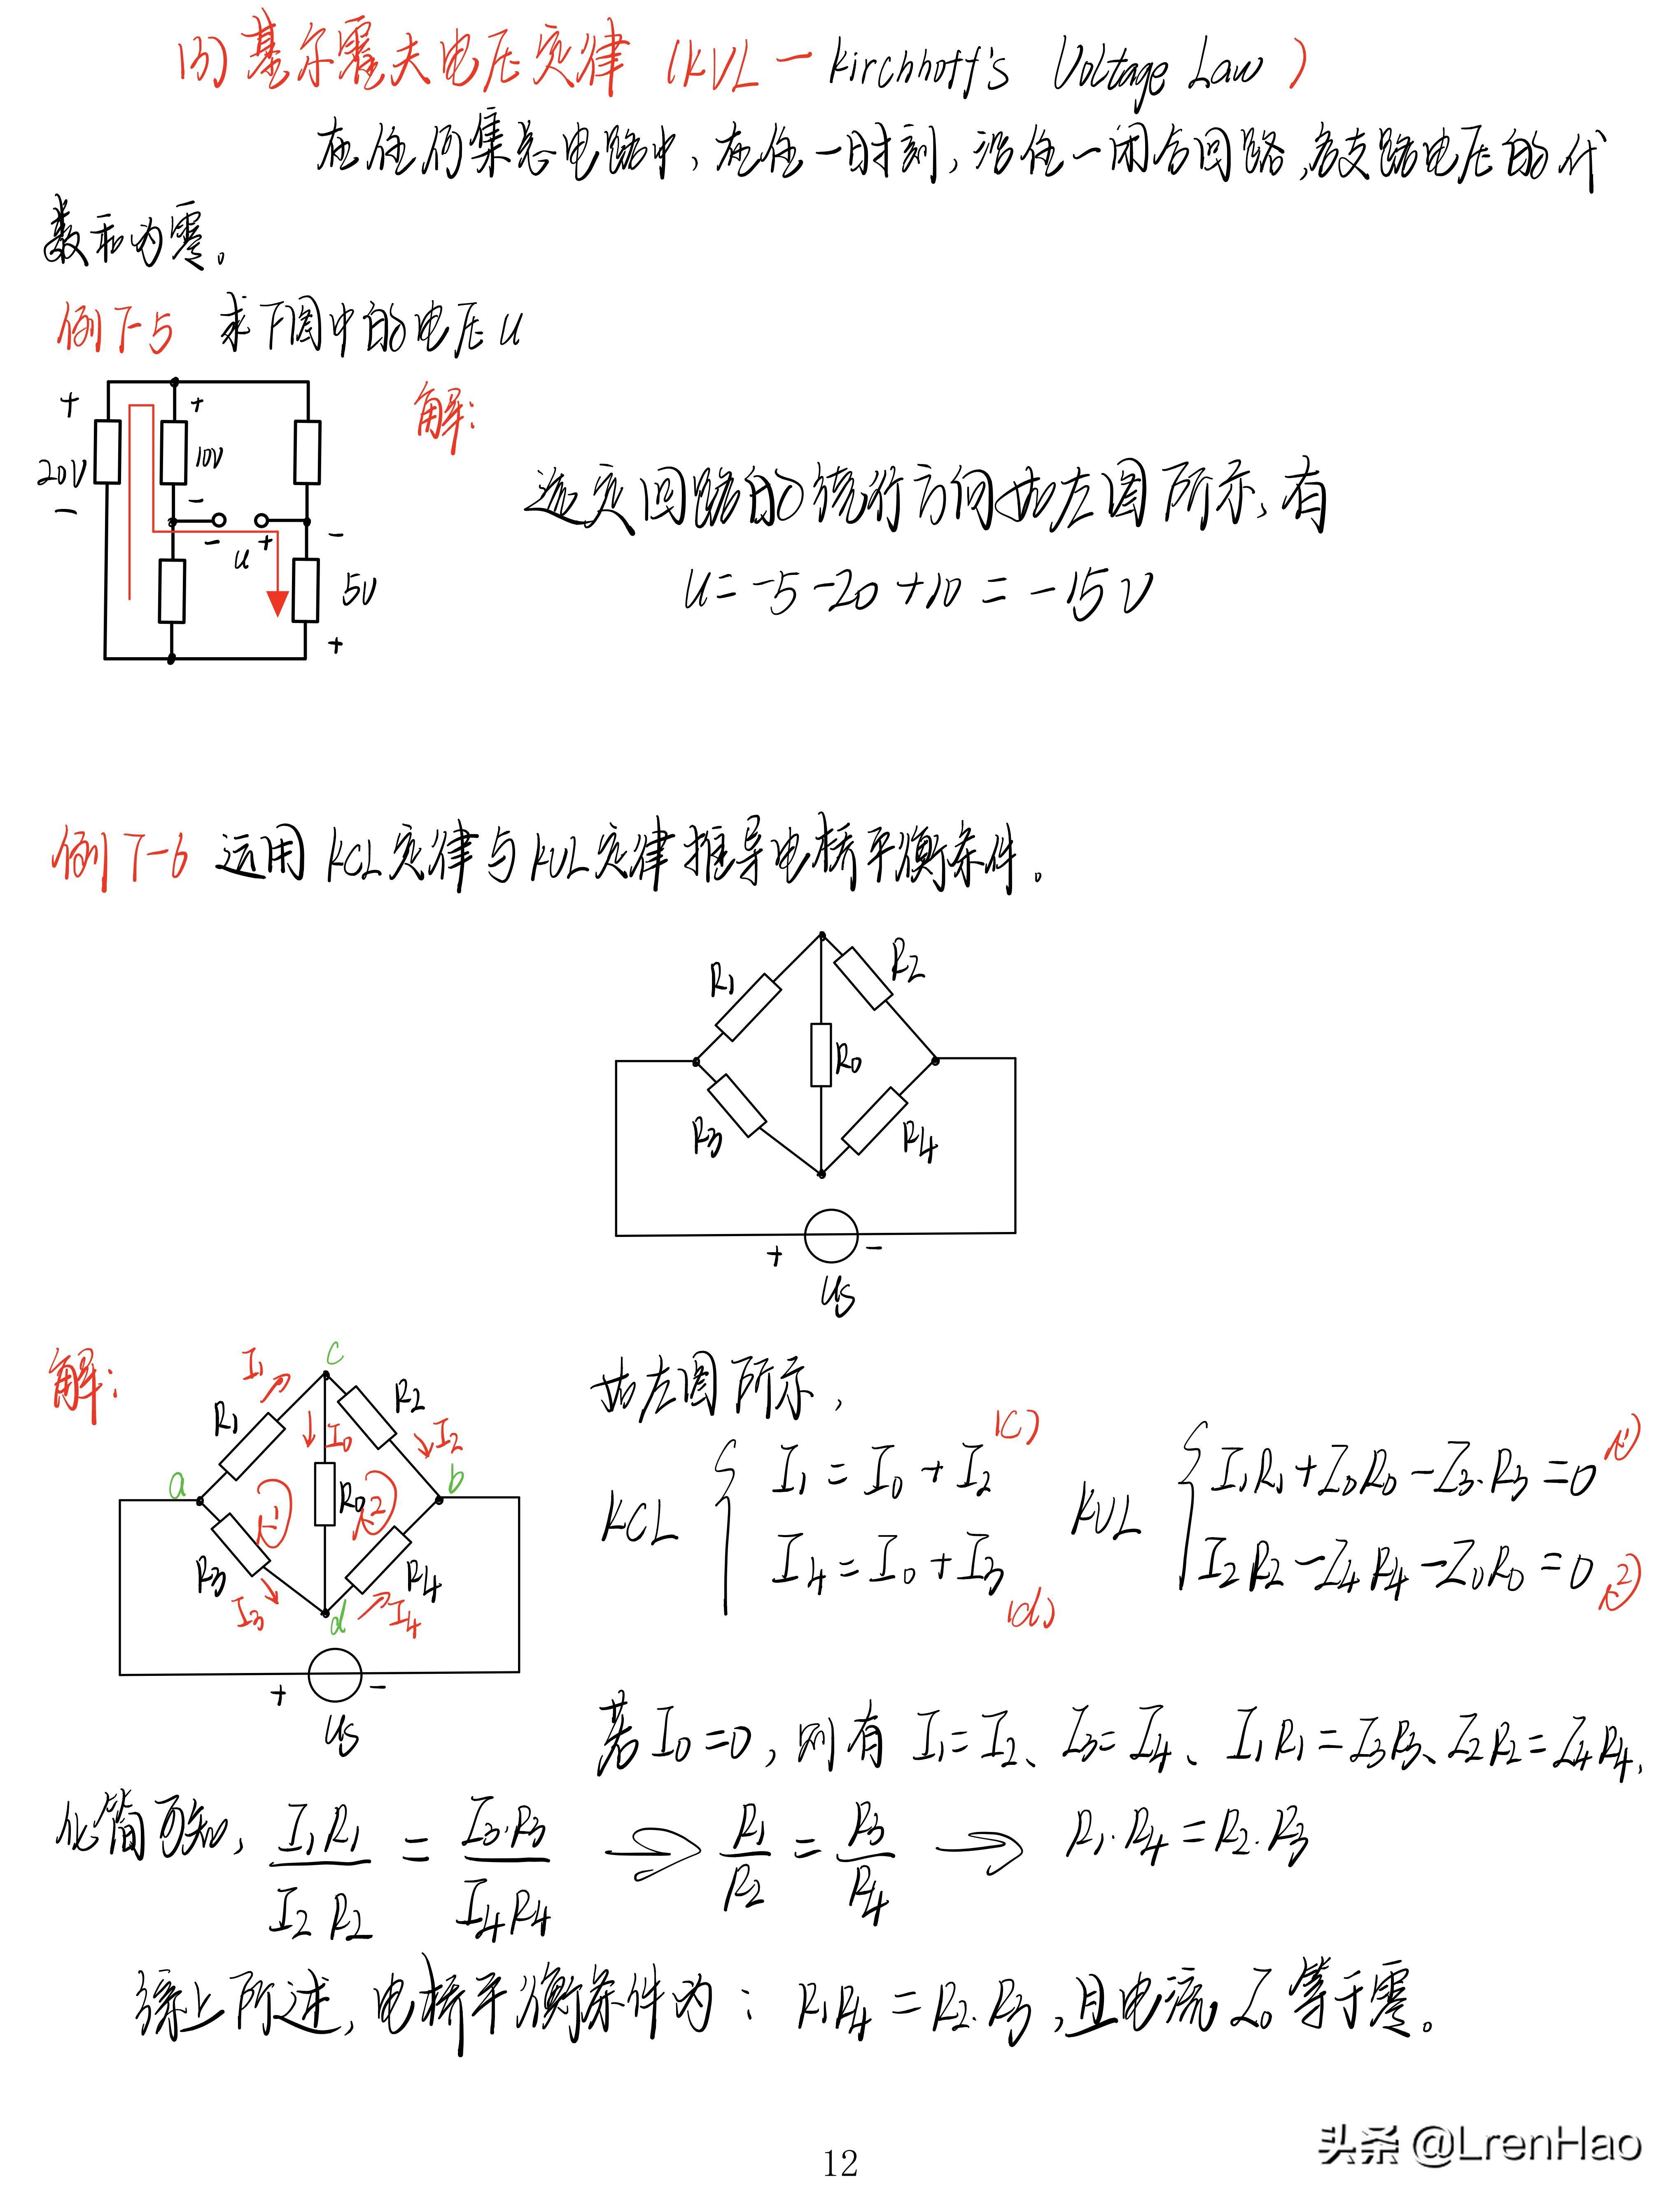 (3) 基尔霍夫电压定律 (KVL — Kirchhoff's Voltage Law)
在任何集总电路中，在任一时刻，沿任一闭合回路，各支路电压的代
数和为零。
例 7-5 求下图中的电压 u
解：
+ + 20V 10V - - - u + - 5V +
选定回路的绕行方向如左图所示，有
u = -5 -20 +10 = -15V
例 7-6 运用 KCL 定律与 KVL 定律推导电桥平衡条件。
R1 R2
R0
R3 R4
+ -
Us
解：
I1 c
R1 R2
I0 I2
a b
R0
1 2
R3 R4
I3 d I4
+ -
Us
如左图所示，
KCL { I1 = I0 + I2 (c)
I4 = I0 + I3 (d)
KVL { I1R1 + I0R0 - I3·R3 = 0 1
I2R2 - I4R4 - I0R0 = 0 2
若 I0 = 0，则有 I1 = I2、I3 = I4、I1R1 = I3R3、I2R2 = I4R4，
化简可知，I1R1 / I2R2 = I3·R3 / I4R4 → R1/R2 = R3/R4 → R1·R4 = R2·R3
综上所述，电桥平衡条件为：R1R4 = R2·R3，且电流 I0 等于零。
12
头条 @LrenHao